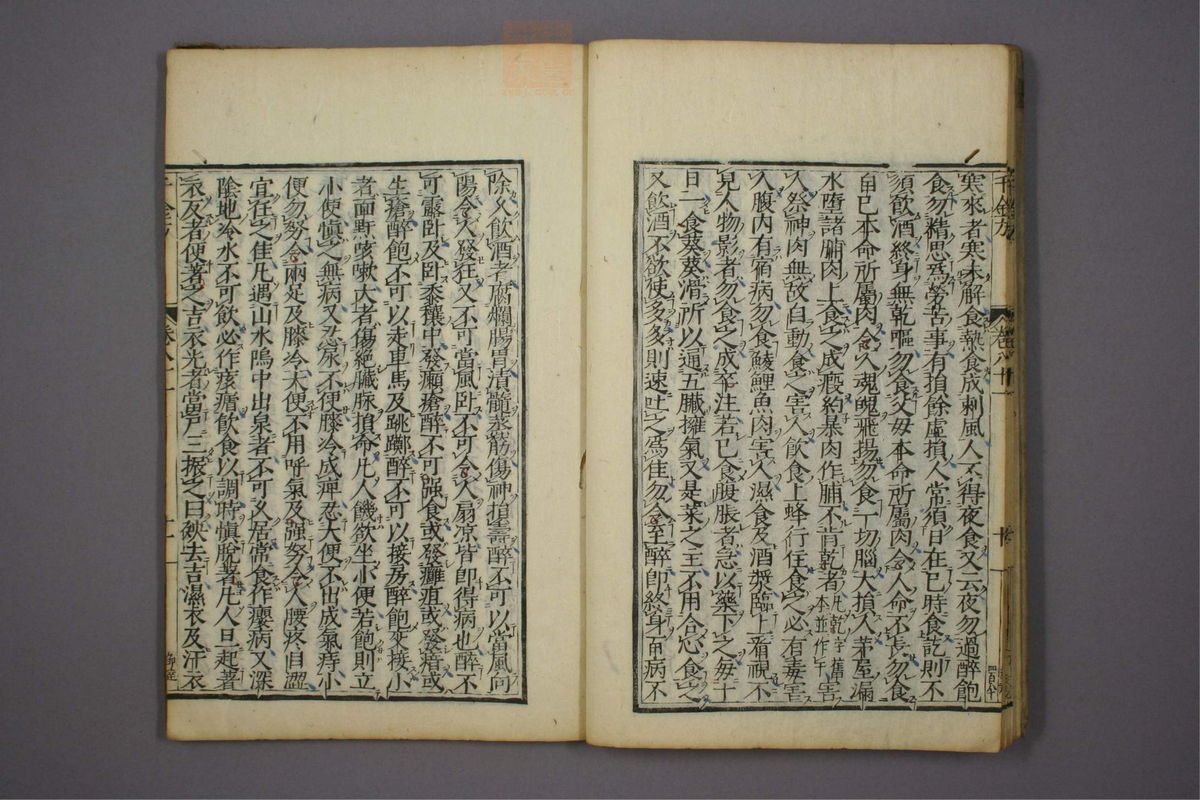 寒來者寒未解食熱食成刺風人不得夜食又云夜勿過醉飽
食勿精思爲勞苦事有損餘虛損人常須日在巳時食訖則不
須飲酒終身無乾嘔勿食父母本命所屬肉令人命不長勿食
自己本命所屬肉令人魂魄飛揚勿食一切腦大損人茅屋漏
水墮諸脯肉上食之成瘕結暴肉作脯不肯乾者凡乾字舊本並作干害
人祭神肉無故自動食之害人飲食上蜂行住食之必有毒害
人腹內有宿病勿食鯪鯉魚肉害人濕食及酒漿臨上看視不
見人物影者勿食之成卒注若已食腹脹者急以藥下之每十
日一食葵葵滑所以通五臟擁氣又是菜之主不用合心食之
又飲酒不欲使多多則速吐之爲佳勿令至醉即終身百病不
千金方
卷八十一
十
除久飲酒者腐爛腸胃漬髓蒸筋傷神損壽醉不可以當風向
陽令人發狂又不可當風臥不可令人扇凉皆即得病也醉不
可露臥及臥黍穰中發癩瘡醉不可強食或發癰疽或發瘖或
生瘡醉飽不可以走車馬及跳躑醉不可以接房醉飽交接小
者面䵟咳嗽大者傷絕臟脉損命凡人饑欲坐小便若飽則立
小便慎之無病又忍尿不便膝冷成痺忍大便不出成氣痔小
便勿努令兩足及膝冷大便不用呼氣及强努令人腰疼目澀
宜任之佳凡遇山水塢中出泉者不可久居常食作癭病又深
陰地冷水不可飲必作痎瘧飲食以調時慎脫著凡人旦起著
衣及者便著之吉衣光者當戶三振之曰殃去吉濕衣及汗衣
千金方
卷八十一
十一